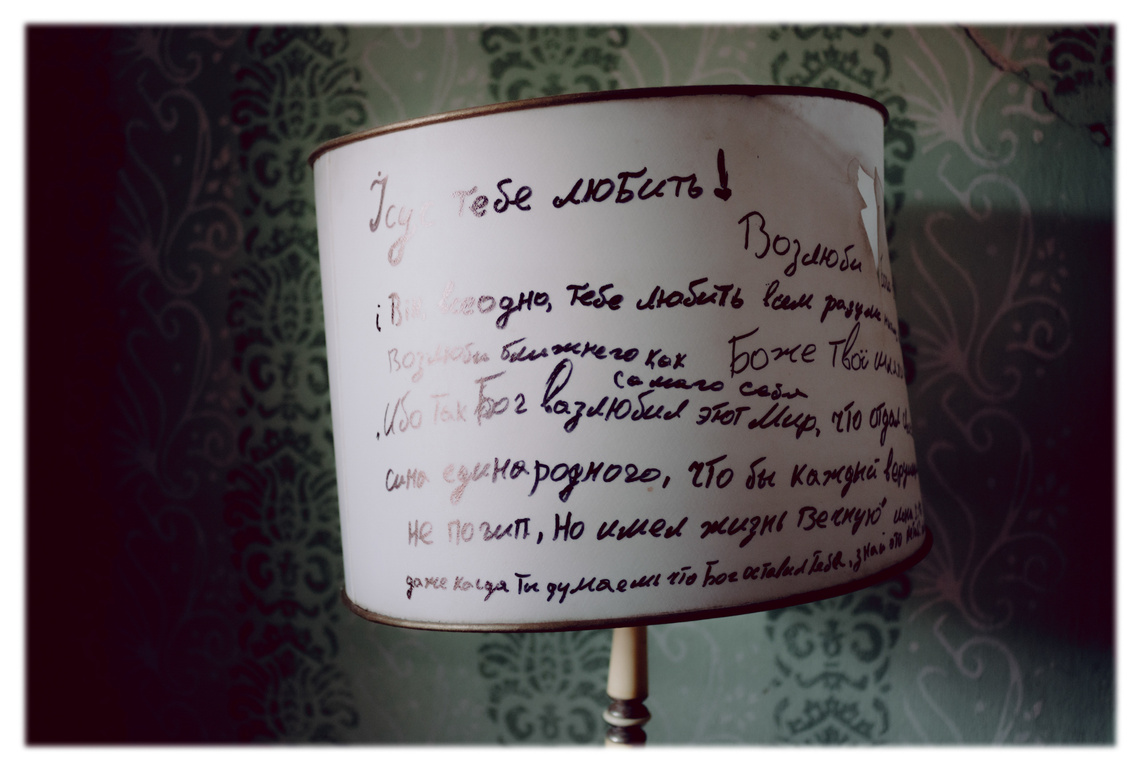 тебе любить!
Возлюби
і Він тебе любить
Возлюби ближнего как
самого себя
Боже Твої
Ибо так Бог вазлюбил этот Мир, что отдал
сина единародного, что бы каждый
не погип, но имел жизнь вечную"
даже когда Ти думаеш что Бог оставил Тебя, знай это